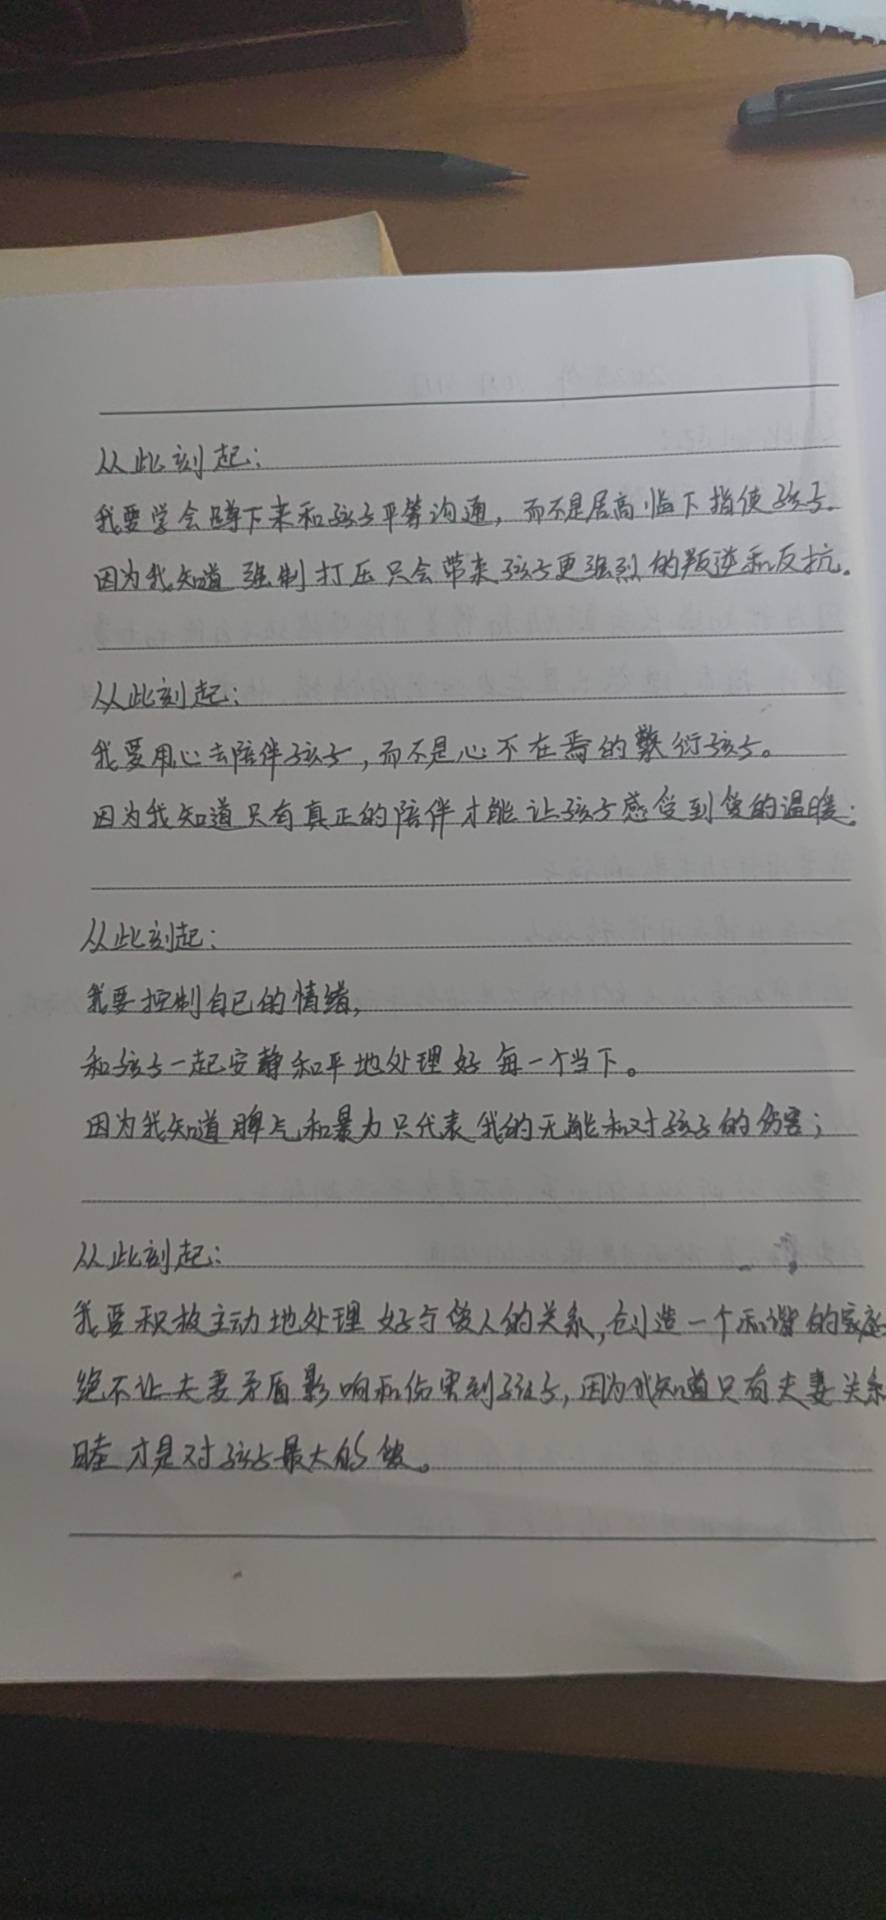 从此刻起：
我要学会蹲下来和孩子平等沟通，而不是居高临下指使孩子.
因为我知道强制打压只会带来孩子更强烈的叛逆和反抗。
从此刻起：
我要用心去陪伴孩子，而不是心不在焉的敷衍孩子。
因为我知道只有真正的陪伴才能让孩子感受到爱的温暖；
从此刻起：
我要控制自己的情绪，
和孩子一起安静和平地处理好每一个当下。
因为我知道脾气和暴力只代表我的无能和对孩子的伤害；
从此刻起：
我要积极主动地处理好与爱人的关系，创造一个和谐的家庭
绝不让夫妻矛盾影响和伤害到孩子，因为我知道只有夫妻关系
睦才是对孩子最大的爱。